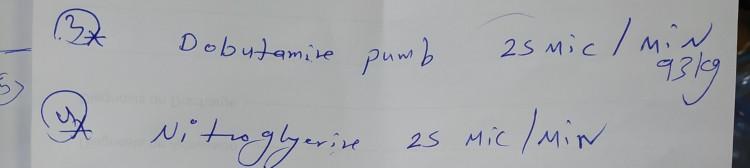 3* Dobutamine pumb 25 mic / MiN
93 kg
4* Nitroglyerine 25 Mic / MiN